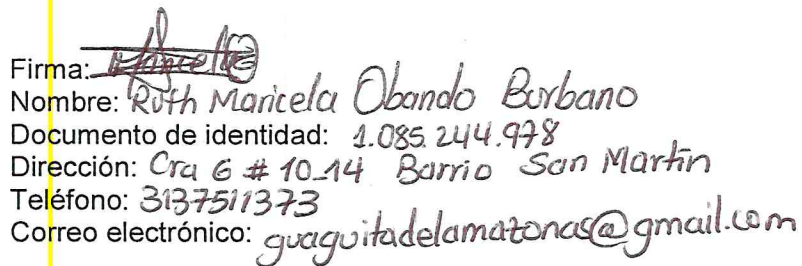 Firma:
Nombre: Ruth Maricela Obando Burbano
Documento de identidad: 1.085.244.978
Dirección: Cra 6 # 10-14 Barrio San Martín
Teléfono: 3137511373
Correo electrónico: guaguitadelamazonas@gmail.com